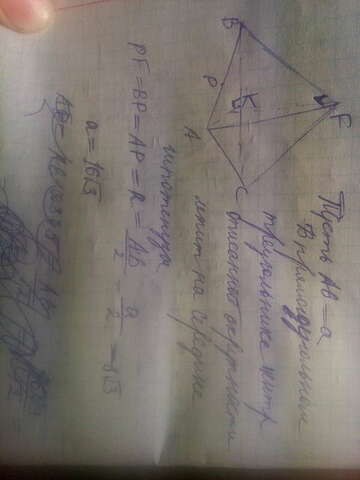 B
P
K
A
F
C
Пусть AB = a
В прямоугольном
треугольнике центр
описанной окружности
лежит на середине
гипотенузы
PF = BP = AP = R = AB/2 = a/2 = 8√3
a = 16√3